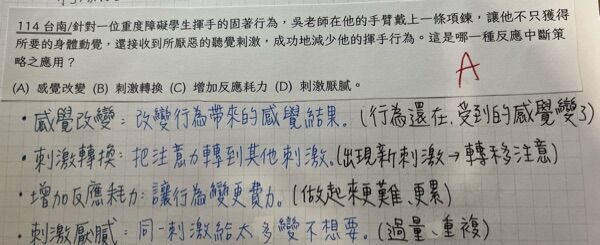 114 台南/針對一位重度障礙學生揮手的固著行為，吳老師在他的手臂戴上一條項鍊，讓他不只獲得
所要的身體動覺，還接收到所厭惡的聽覺刺激，成功地減少他的揮手行為。這是哪一種反應中斷策
略之應用？
A
(A) 感覺改變 (B) 刺激轉換 (C) 增加反應耗力 (D) 刺激厭膩。
・感覺改變：改變行為帶來的感覺結果。(行為還在，受到的感覺變了)
・刺激轉換：把注意力轉到其他刺激。(出現新刺激→轉移注意)
・增加反應耗力：讓行為變更費力。(做起來更難、更累)
・刺激厭膩：同一刺激給太多變不想要。(過量、重複)